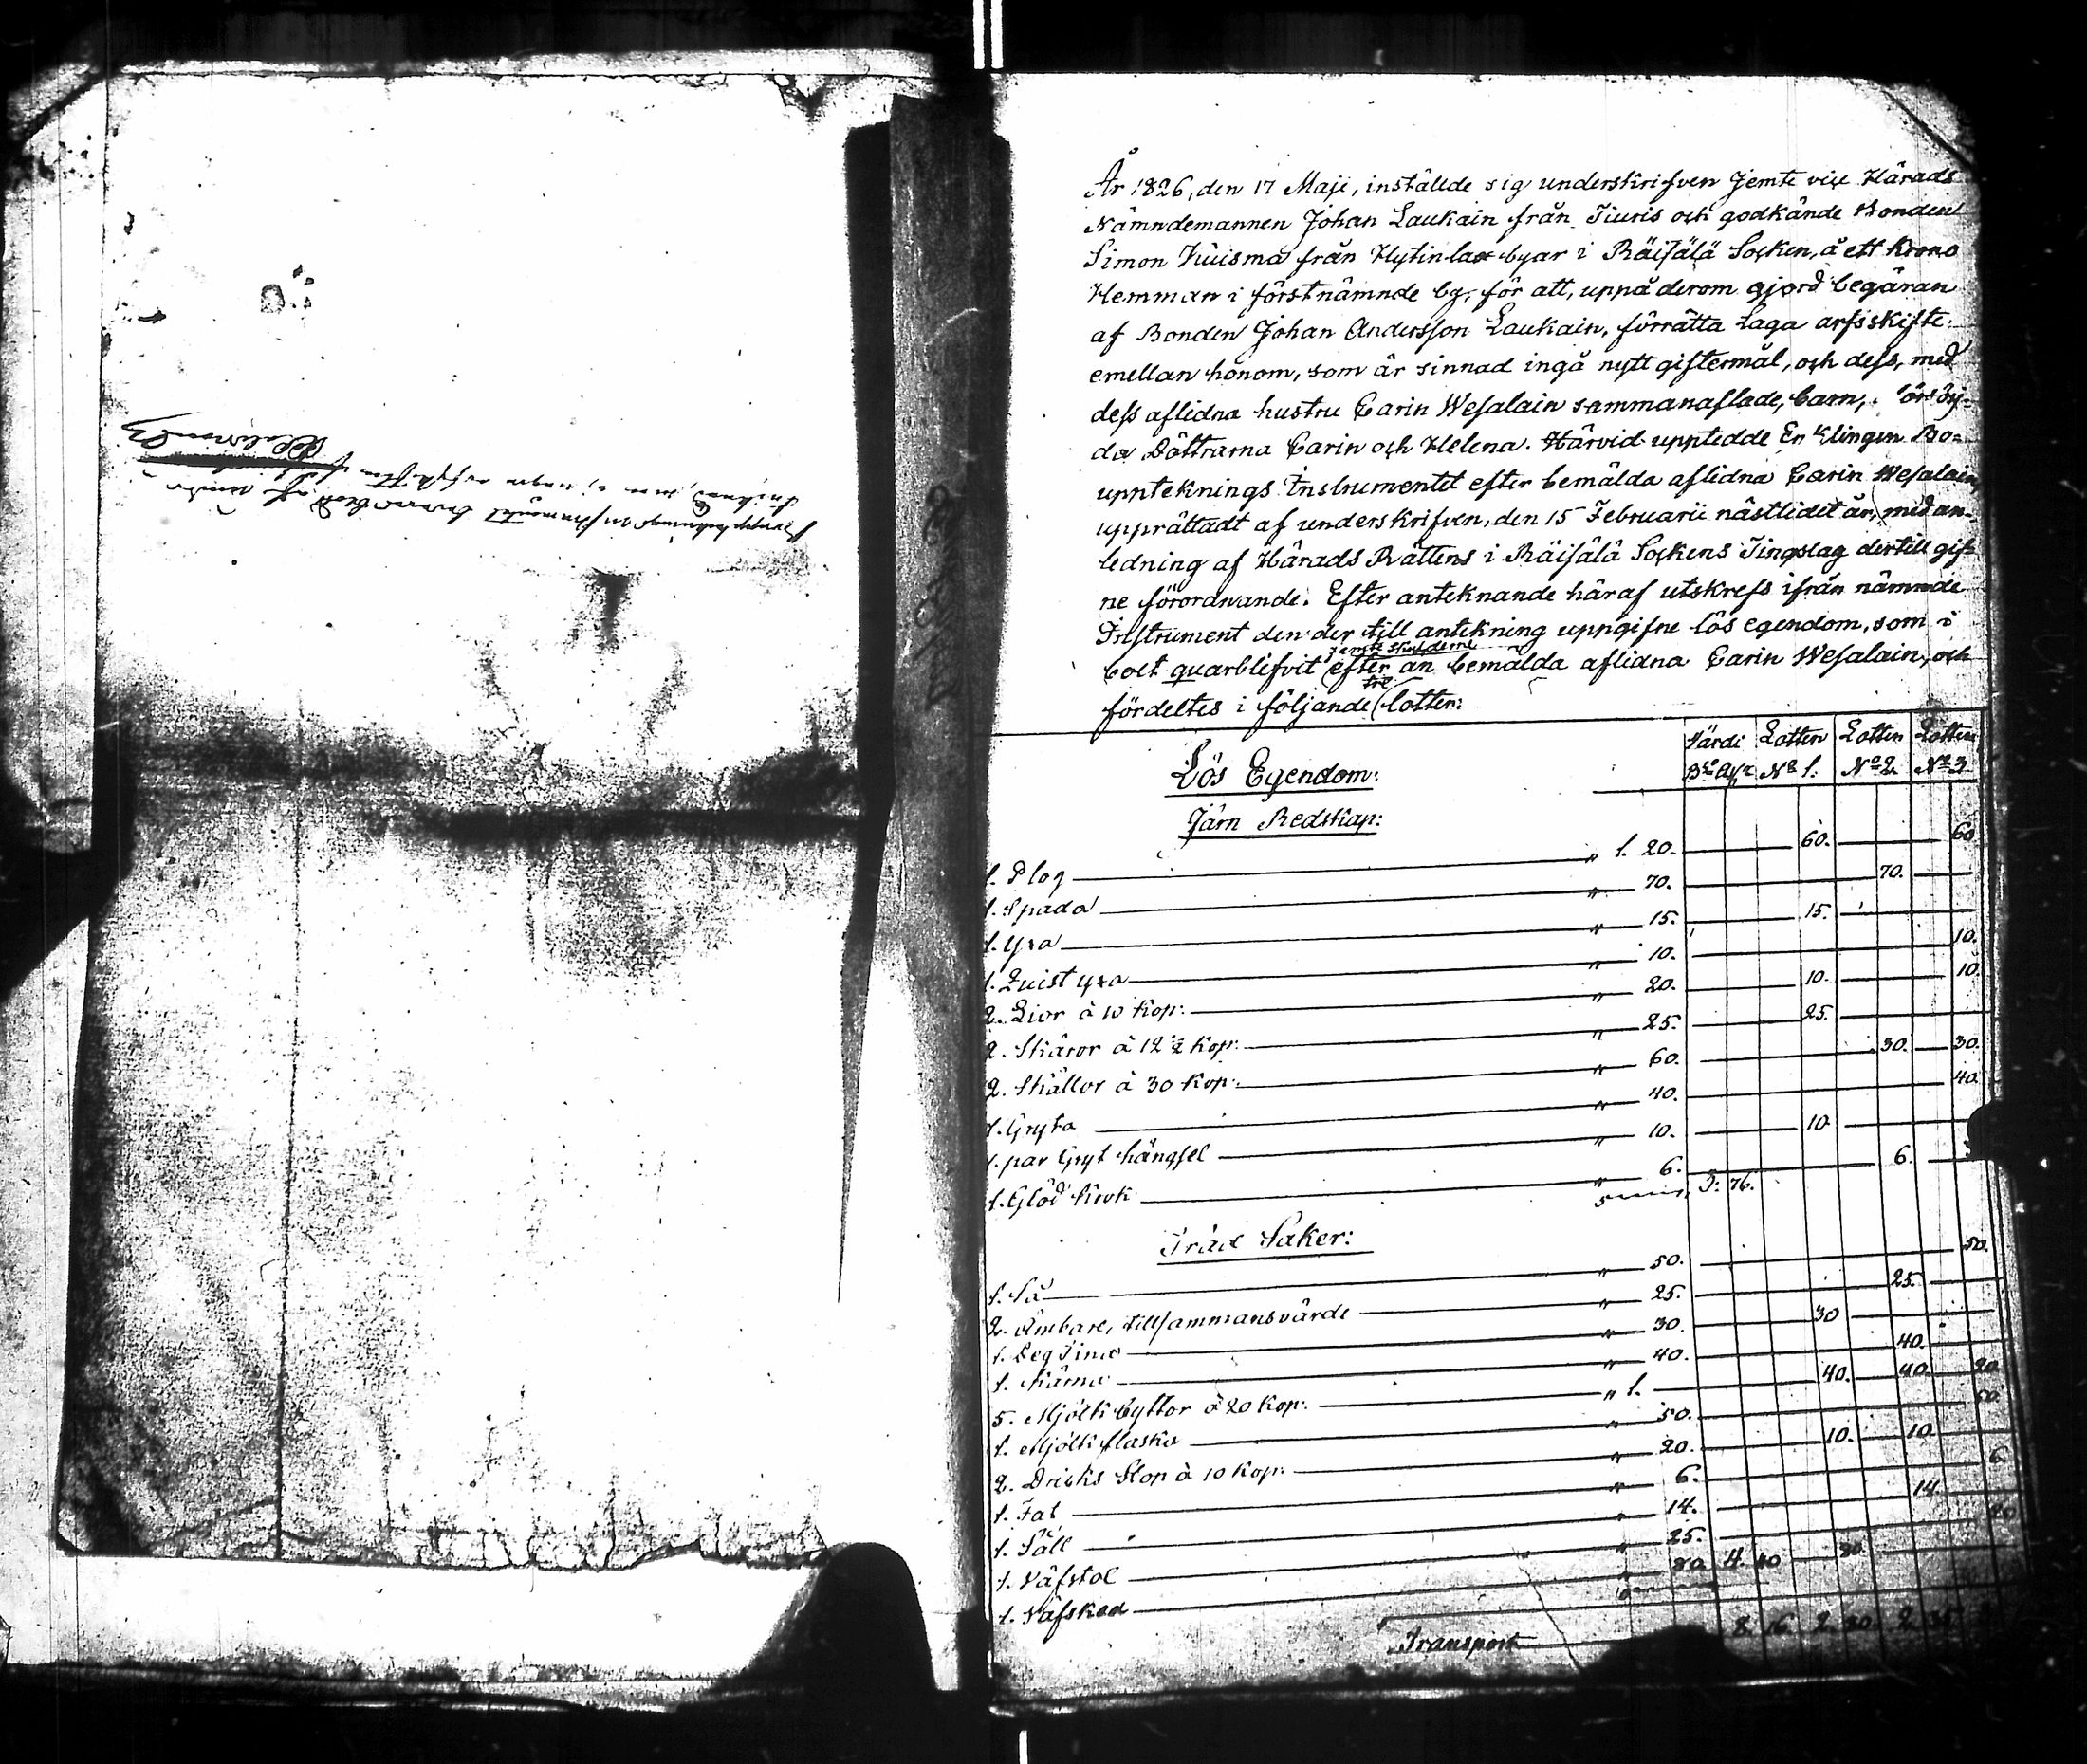 År 1826, den 17 Maji, instälde sig underskrifven jemte vice Härads
Nämndemannen Johan Laukain från Tiuris och godkände Bonden
Simon Kuisma från Hytinlax byar i Räisälä Socken, å ett Krono
Hemman i förstnämnde by, för att, uppå derom gjord begäran
af Bonden Johan Andersson Laukain, förrätta Laga arfsskifte
emellan honom, som är sinnad ingå nytt giftermål, och dess, med
dess aflidna hustru Carin Wesalain sammanaflade, barn,
da Döttrarna Carin och Helena. Härvid upptedde Enklingen Bo-
uppteknings Instrumentet efter bemälda aflidna Carin Wesalain,
upprättadt af underskrifven, den 15 Februarii nästlidit år, med an-
ledning af Härads Rättens i Räisälä Sockens Tingslag dertill gif-
ne förordnande. Efter anteknande häraf utskrefs ifrån nämnde
Instrument den der till antekning uppgifne lös egendom, som i
jemte skulderne
boet quarblifvit efter an bemälda aflidna Carin Wesalain, och
tre
fördeltes i följande lotter:
Värdi Lotten Lotten Lotten
Bco Assr No 1. No 2. No 3
Lös Egendom:
Järn Redskap:
1. Plog " 1. 20. 60. 60
1. Spada " 70. 70.
1. Yxa " 15. 15.
1. Quist yxa " 10. 10.
2. Lior à 10 Kop: " 20. 10. 10.
2. Skäror à 12 1/2 Kop: " 25. 25.
2. Skällor à 30 Kop: " 60. 30. 30.
1. Gryta " 40. 40.
1. par Gryt hängsel " 10. 10
1. Glöd krok " 6. 3. 76. 6.
Träd Saker:
1. Så " 50. 50.
2. Ämbare, tillsammans värde " 25. 25.
1. Deg Tina " 30. 30
1. Kärna " 40. 40.
5. Mjölk byttor à 20 Kop: " 1. 40. 40. 20
1. Mjölk flaska " 50. 50
2. Dricks Stop à 10 Kop: " 20. 10. 10
1. Fat " 6. 6
1. Såll " 14. 14
1. Väfstol " 25.
1. Väfsked " 80. 4. 40 80
Transport 8 16 2 80 2 35